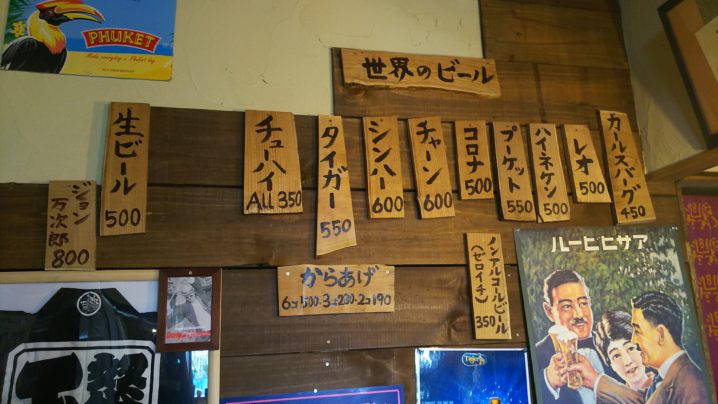 PHUKET
世界のビール
ジョン万次郎 800
生ビール 500
チューハイ All 350
タイガー 550
シンハー 600
チャーン 600
コロナ 500
プーケット 550
ハイネケン 500
レオ 500
カールスバーグ 450
からあげ
6コ500-3コ280-2コ190
ノンアルコールビール
(ゼロイチ)
350
ルービヒサア
Tiger